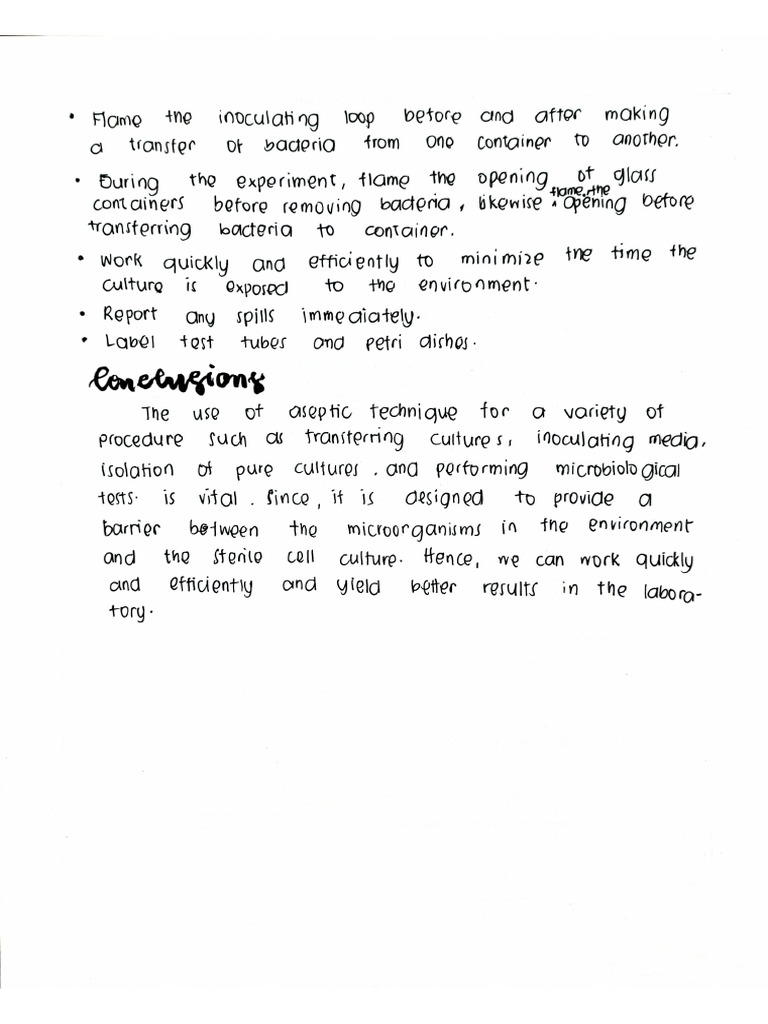 • Flame the inoculating loop before and after making
a transfer of bacteria from one container to another.
• During the experiment, flame the opening of glass
containers before removing bacteria, likewise ^ flame the opening before
transferring bacteria to container.
• Work quickly and efficiently to minimize the time the
culture is exposed to the environment.
• Report any spills immediately.
• Label test tubes and petri dishes.
Conclusions
The use of aseptic technique for a variety of
procedure such as transferring cultures, inoculating media,
isolation of pure cultures, and performing microbiological
tests. is vital. Since, it is designed to provide a
barrier between the microorganisms in the environment
and the sterile cell culture. Hence, we can work quickly
and efficiently and yield better results in the labora-
tory.